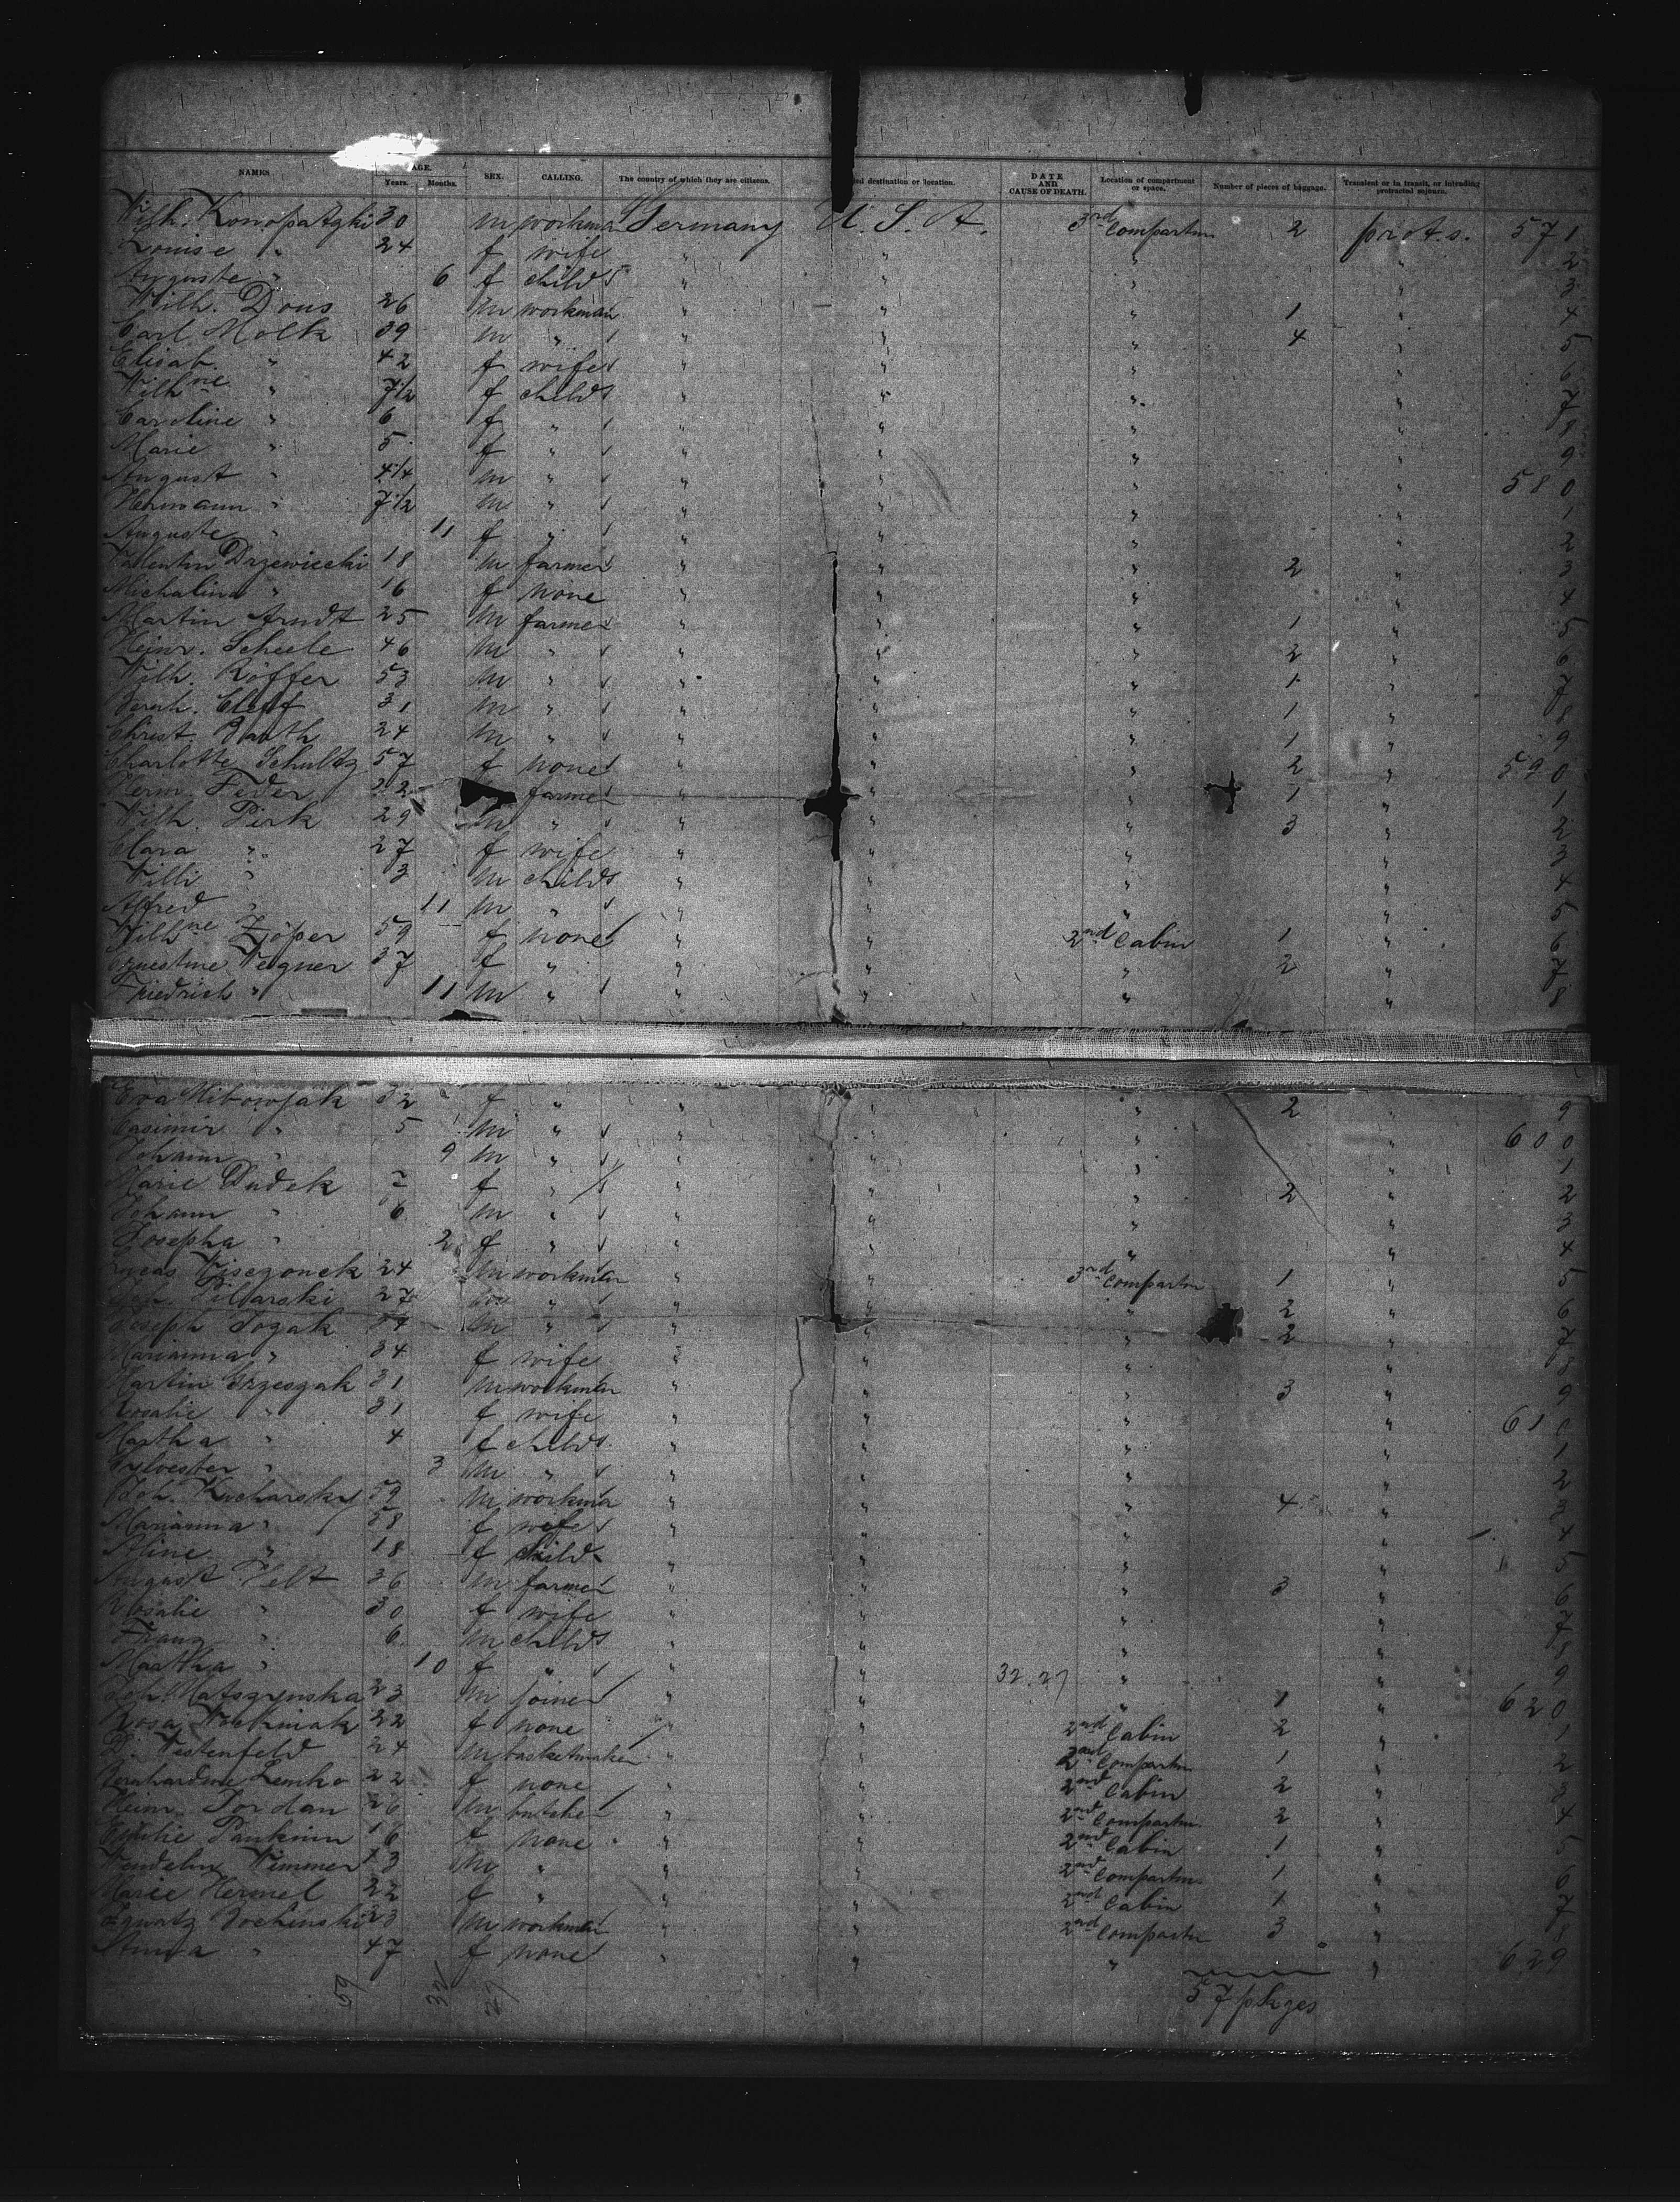 NAMES AGE. Years. Months. SEX. CALLING. The country of which they are citizens. destination or location. DATE AND CAUSE OF DEATH. Location of compartment or space. Number of pieces of baggage. Transient or in transit, or intending protracted sojourn.
Wilh. Konopatzki 30 m workman Germany U. S. A. 3rd Compartm 2 protr. s. 571
Louise " 24 f wife " " " " 2
Auguste " 6 f child " " " " 3
Wilh. Dous 26 m workman " " " 1 " 4
Carl Molk 39 m " " " " 4 " 5
Elisab. " 42 f wife " " " " 6
Wilhne " 7 1/2 f child " " " " 7
Caroline " 6 f " " " " " 8
Marie " 5 f " " " " " 9
August " 4 1/4 m " " " " " 580
Hermann " 7 1/2 m " " " " " 1
Auguste " 11 f " " " " " 2
Valentin Drzewiecki 18 m farmer " " " 2 " 3
Michalina " 16 f none " " " " 4
Martin Arndt 25 m farmer " " " 1 " 5
Heinr. Scheele 46 m " " " " 2 " 6
Wilh. Röffer 53 m " " " " 1 " 7
Bernh. Cleff 31 m " " " " 1 " 8
Christ. Barth 24 m " " " " 1 " 9
Charlotte Schultz 57 f none " " " 2 " 590
Herm. Feder 22 farmer " " " 1 " 1
Wilh. Pirk 29 m " " " " 3 " 2
Clara " 27 f wife " " " " 3
Willi " 3 m child " " " " 4
Alfred " 11 m " " " " " 5
Wilhne Zöper 59 f none " " 2nd Cabin 1 " 6
Ernestine Wegner 37 f " " " " 2 " 7
Friedrich " 11 m " " " " " 8
Eva Mibowsak 32 f " " " " 2 " 9
Casimir " 5 m " " " " " 600
Johann " 9 m " " " " " 1
Marie Dudek 7 f " " " " 2 " 2
Johann " 6 m " " " " " 3
Josepha " 2 f " " " " " 4
Wisezonek 24 m workman " " 3rd Compartm 1 " 5
Joh. Pilarski 27 m " " " " 2 " 6
Joseph Togak 34 m " " " " 2 " 7
Marianna " 34 f wife " " " " 8
Martin Grzeszak 31 m workman " " " 3 " 9
Rosalie " 31 f wife " " " " 610
Martha " 4 f child " " " " 1
Sylvester " 3 m " " " " " 2
Joh. Kucharsky 59 m workman " " " 4 " 3
Marianna " 58 f wife " " " " 4
Aline " 18 f child " " " " 5
August Velt 36 m farmer " " " 3 " 6
Rosalie " 30 f wife " " " " 7
Franz " 6 m child " " " " 8
Martha " 10 f " " " 32.27 " " 9
Joh. Matszynska 23 m joiner " " " 1 " 620
Rosa Wozniak 22 f none " " 2nd Cabin 2 " 1
Westenfeld 24 m basketmaker " " 2nd Compartm 1 " 2
Bernhardine Lemko 22 f none " " 2nd Cabin 2 " 3
Heinr. Jordan 26 m butcher " " 2nd Compartm 2 " 4
Emilie Panknin 16 f none " " 2nd Cabin 1 " 5
Wendelin Wimmer 13 m " " " 2nd Compartm 1 " 6
Marie Hermel 22 f " " " 2nd Cabin 1 " 7
Ignatz Bochenski 23 m workman " " 2nd Compartm 3 " 8
Anna " 47 f none " " " " 629
59 32 27 57 pkges